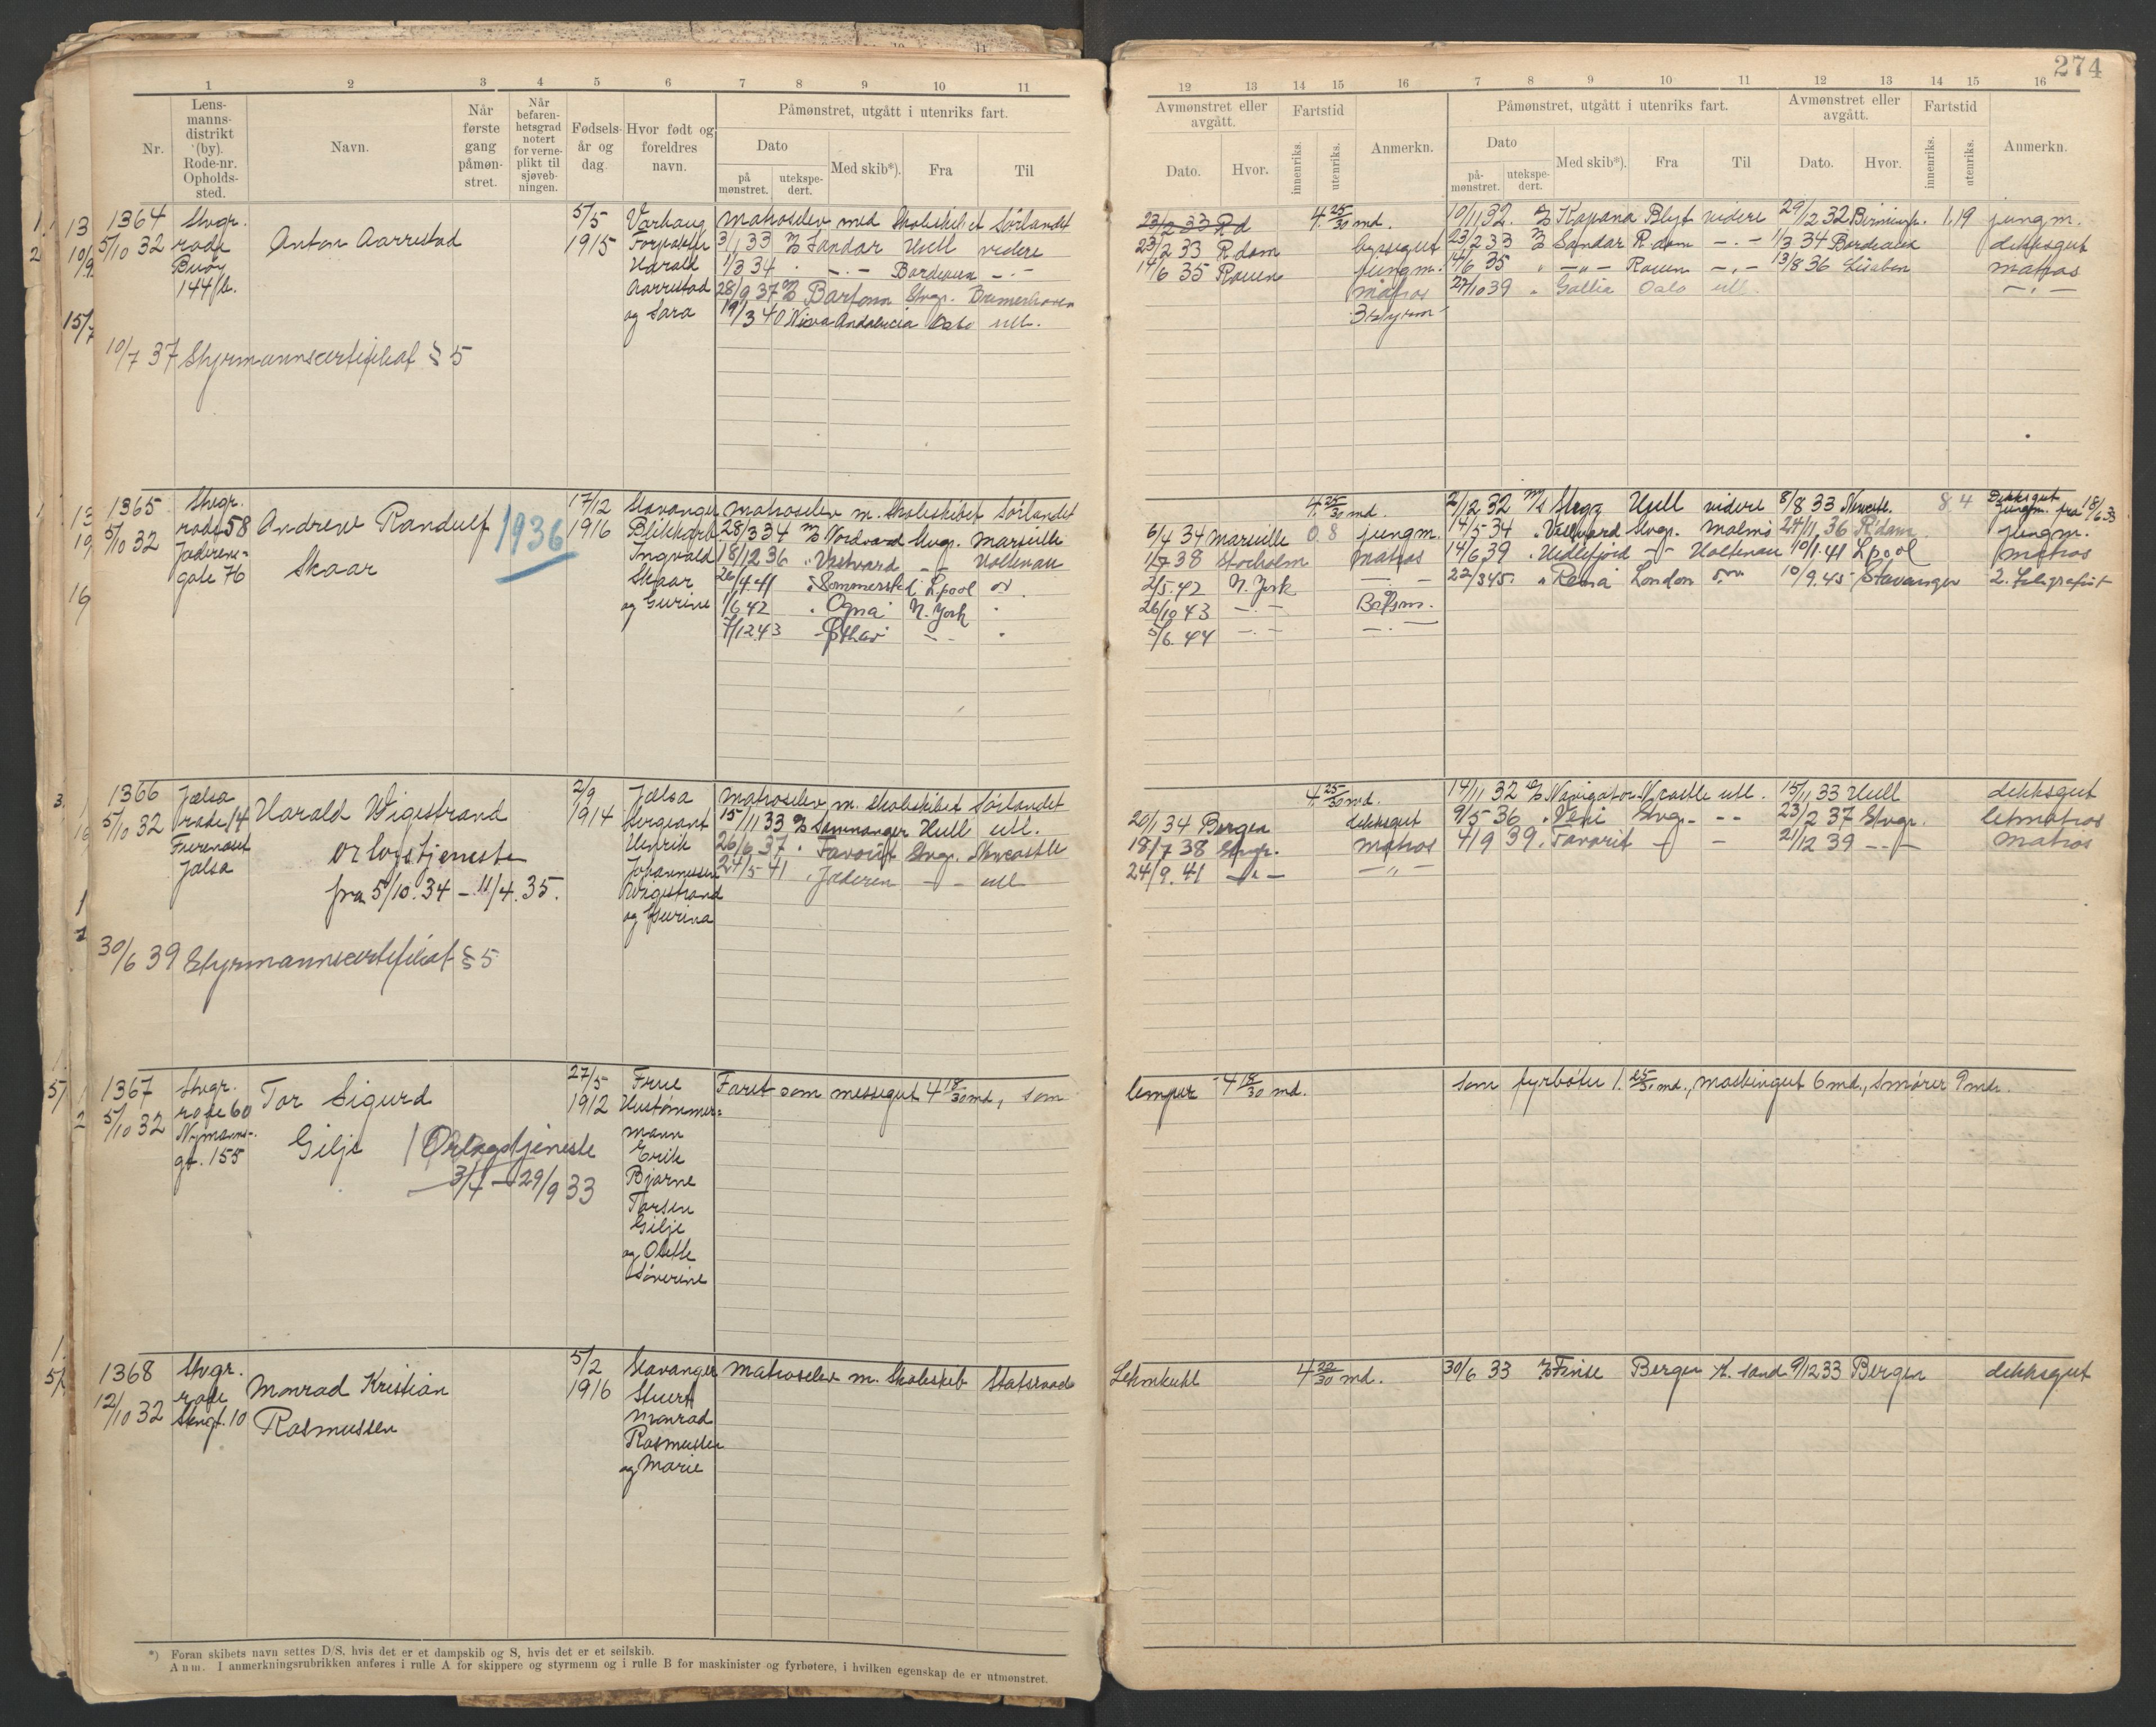 274
1 2 3 4 5 6 7 8 9 10 11
Nr.
Lens-
manns-
distrikt
(by).
Rode-nr.
Opholds-
sted.
Navn.
Når
første
gang
påmøn-
stret.
Når
befaren-
hetsgrad
notert
for verne-
plikt til
sjøveb-
ningen.
Fødsels-
år og
dag.
Hvor født og
foreldres
navn.
Påmønstret, utgått i utenriks fart.
Dato
på
mønstret.
utekspe-
dert.
Med skib*).
Fra
Til
12 13 14 15 16 7 8 9 10 11 12 13 14 15 16
Avmønstret eller
avgått.
Dato.
Hvor.
Fartstid
innenriks.
utenriks.
Anmerkn.
Påmønstret, utgått i utenriks fart.
Dato
på-
mønstret.
utekspe-
dert.
Med skib*).
Fra
Til
Avmønstret eller
avgått.
Dato.
Hvor.
Fartstid
innenriks.
utenriks.
Anmerkn.
1364
5/10 32
Stvgr.
rode
Buøy
144 b.
Anton Aarrestad
5/5
1915
Varhaug
Forpakter
Harald
Aarrestad
og Sara
Matroselev med Skoleskibet Sørlandet
3/1 33 Sandar Hull videre
1/3 34 - " - Bordeaux - " -
28/9 37 Bartonn Stvgr. Bremerhaven
19/3 40 Nova Andalucia Oslo utl.
10/7 37 Styrmannscertifikat § 5
23/2 33 R.d 4 25/30 md.
23/2 33 R.dam byssegut
14/6 35 Rouen jungm.
matros
3 styrm
10/11 32. Kapana Blyt videre 29/12 32 1,19 jungm.
23/2 33 Sandar R.dam - " - 1/3 34 Bordeaux dekksgut
14/6 35 " - " - Rouen - " - 13/8 36 Lisabon matros
27/10 39 " Gallia Oslo utl. - " -
1365
5/10 32
Stvgr.
rode 58
Jæderens-
gate 76
Andrew Randulf
Skaar
1936
17/12
1916
Stavanger
Blikkarb.
Ingvald
Skaar
og Gurine
Matroselev m. Skoleskibet Sørlandet
28/3 34 Nordvard Stvgr. Marseille
18/12 36 " Vestvard - - Holtenau
26/4.41 " Sommerstad L.pool
1/6 42 " Ogna N. York "
7/12.43 - - "
4 25/30 md.
6/4 34 Marseille 0.8 jungm.
1/7 38 Stocholm Matros
2/5.42 N. York - " -
26/10 43 - " - Båtsm.
5/6.44 - " - - " -
2/12 32 M/s Hull videre 8/8 33 Newcastle. 8 4 Dekksgut
jungm. fra 18/6 33
14/5 34 " Vallvard Stvgr. Malmö 24/11 36 R'dam jungm.
14/6 39 " Hidlefjord - " - Holtenau 10/1.41 L pool matros
22/3 45 " Rena London 10/9.45 Stavanger 2. Telegrafist
1366
5/10 32
Jelsa
rode 14
Furenaset
Jelsa
Harald Wigestrand
orlogstjeneste
fra 5/10.34 - 11/4.35.
2/9
1914
Jelsa
Sergeant
Henrik
Johannessen
Wigestrand
og Gurina
Matroselev m. Skoleskibet Sørlandet
15/11 33 Samnanger Hull utl.
26/6 37 " Favorit Stvgr. Newcastle
24/5-41 " Jæderen - " - utl
30/6 39 Styrmannscertifikat § 5
4 25/30 md.
20/1 34 Bergen dekksgut
18/7 38 Stvgr. matros
24/9.41 - " - - " -
14/11 32 Navigator N.castle utl. 15/11 33 Hull dekksgut
9/5-36 " Veni Stvgr. - - 23/2 37 Stvgr. letmatros
4/9 39 " Favorit - " - - 21/12 39 - " - Matros
1367
5/10 32
Stvgr.
rode 60
Nymanns-
gt. 155
Tor Sigurd
Gilje
Orlogstjeneste
3/4 - 29/9 33
27/5
1912
Frue
Hustømmer-
mann
Erik
Bjarne
Torsen
Gilje
og Olette
Søverine
Faret som messegut 4 18/30 md, som
lemper 4 18/30 md.
som fyrbøter 1. 25/31 md., maskingut 6 md., smører 9 md.
1368
12/10 32
Stvgr.
rode
Skngt. 10
Monrad Kristian
Rasmussen
5/2
1916
Stavanger
Stuert
Monrad
Rasmussen
og Marie
Matroselev m. Skoleskib Statsraad
Lehmkuhl 4 22/30 md.
30/6 33 Finse Bergen Kr. sand 9/12 33 Bergen dekksgut
*) Foran skibets navn settes D/S, hvis det er et dampskib og S, hvis det er et seilskib.
Anm. I anmerkningsrubrikken anføres i rulle A for skippere og styrmenn og i rulle B for maskinister og fyrbøtere, i hvilken egenskap de er utmønstret.